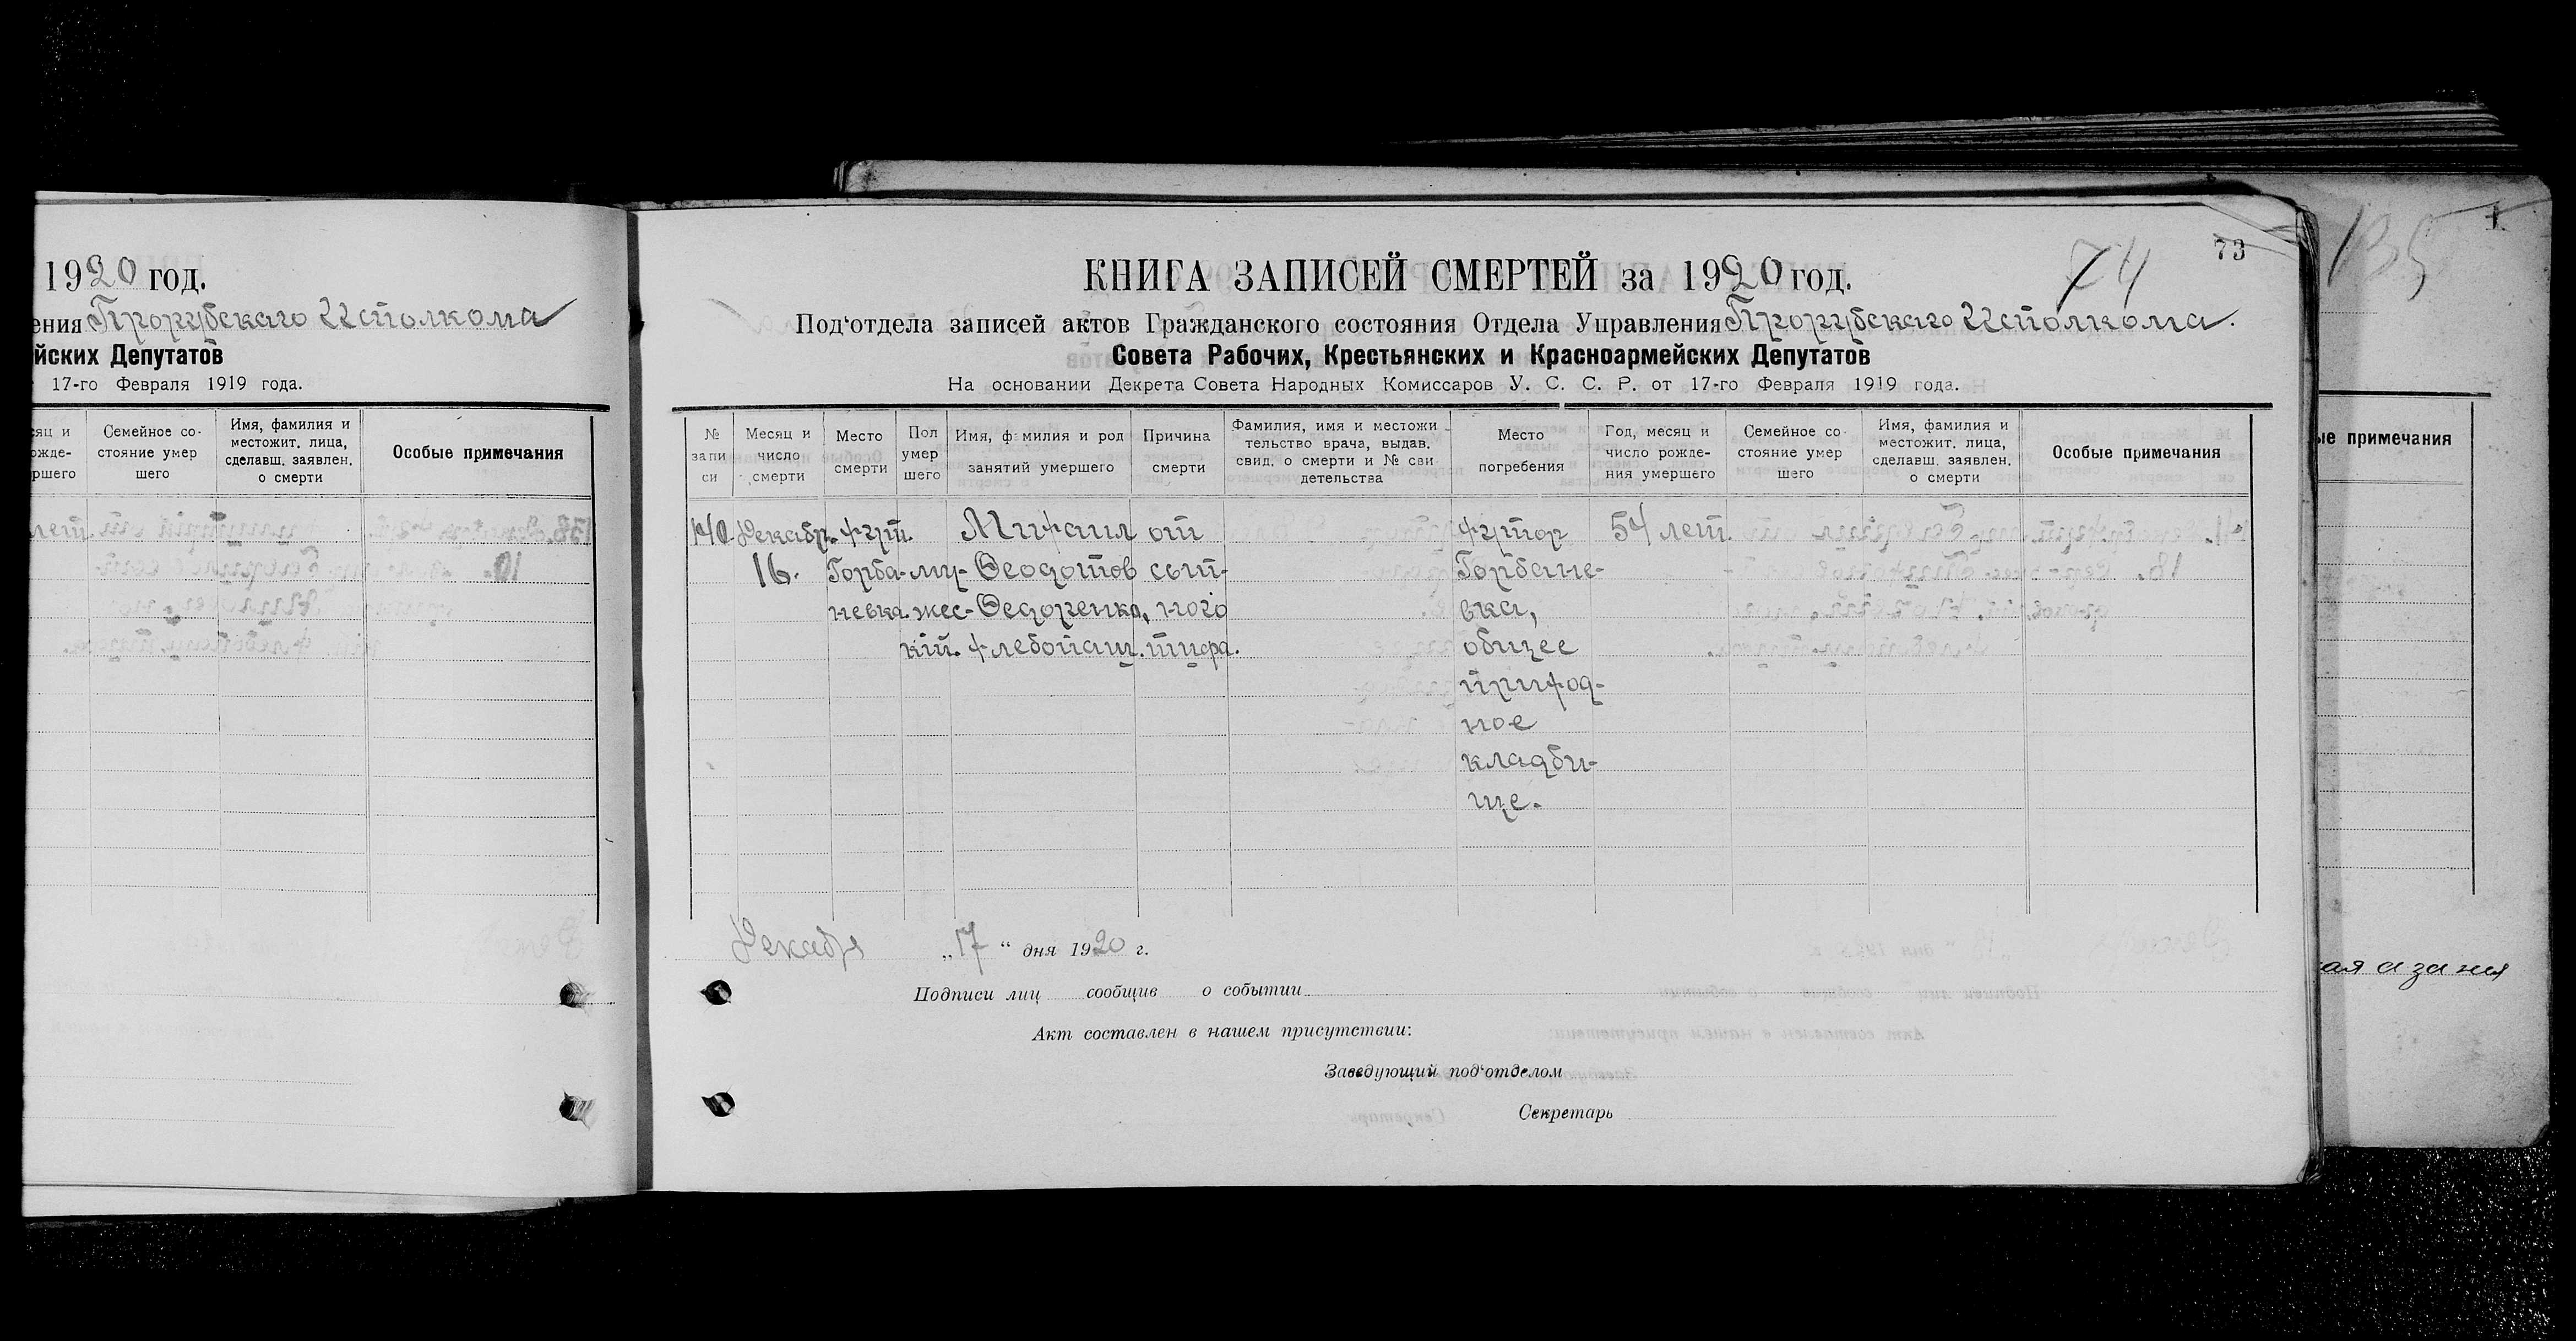 1920 год.
ения Прорубскаго Исполкома
йских Депутатов
17-го Февраля 1919 года.
яц и
ожде-
ршего
Семейное со-
стояние умер
шего
Имя, фамилия и
местожит. лица,
сделавш. заявлен.
о смерти
Особые примечания
73
74
135
КНИГА ЗАПИСЕЙ СМЕРТЕЙ за 1920 год.
Под‘отдела записей актов Гражданского состояния Отдела Управления Прорубскаго Исполкома.
Совета Рабочих, Крестьянских и Красноармейских Депутатов
На основании Декрета Совета Народных Комиссаров У. С. С. Р. от 17-го Февраля 1919 года.
№
запи
си
Месяц и
число
смерти
Место
смерти
Пол
умер
шего
Имя, фамилия и род
занятий умершего
Причина
смерти
Фамилия, имя и местожи
тельство врача, выдав.
свид. о смерти и № сви
детельства
Место
погребения
Год, месяц и
число рожде-
ния умершего
Семейное со
стояние умер
шего
Имя, фамилия и
местожит. лица,
сделавш. заявлен.
о смерти
Особые примечания
140
Декабр.
16.
хут.
Горба-
невка.
муж-
жес-
кій.
Михаил
Феодотов
Федоренко,
хлебопаш.
от
сып-
ного
тифа.
хутор
Горбане-
вка,
общее
приход-
ное
кладби-
ще.
54 лет.
Декабря „17“ дня 1920 г.
Подписи лиц сообщив о событии
Акт составлен в нашем присутствии:
Заведующий под‘отделом
Секретарь
ые примечания